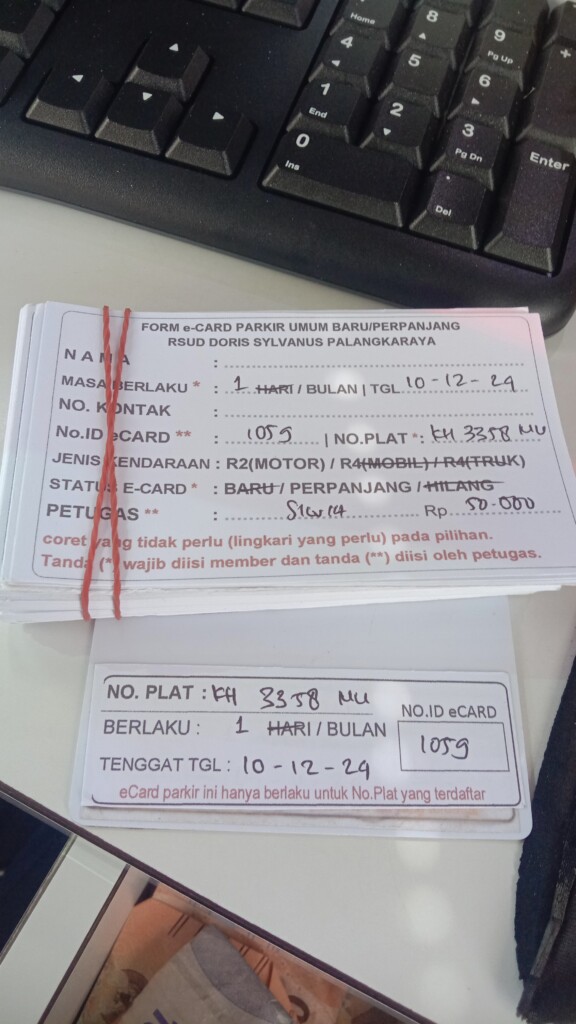 Home
8
9
Pg Up
+
4
5
6
1
End
2
3
Pg Dn
0
Ins
.
Del
Enter
FORM e-CARD PARKIR UMUM BARU/PERPANJANG
RSUD DORIS SYLVANUS PALANGKARAYA
NAMA :
MASA BERLAKU * : 1 HARI / BULAN | TGL 10-12-24
NO. KONTAK :
No.ID eCARD ** : 1059 | NO.PLAT *: KH 3358 MU
JENIS KENDARAAN : R2(MOTOR) / R4(MOBIL) / R4(TRUK)
STATUS E-CARD * : BARU / PERPANJANG / HILANG
PETUGAS ** : Rp. 50.000
coret yang tidak perlu (lingkari yang perlu) pada pilihan.
Tanda (*) wajib diisi member dan tanda (**) diisi oleh petugas.
NO. PLAT : KH 3358 MU
NO.ID eCARD
BERLAKU : 1 HARI / BULAN
1059
TENGGAT TGL : 10-12-24
eCard parkir ini hanya berlaku untuk No.Plat yang terdaftar